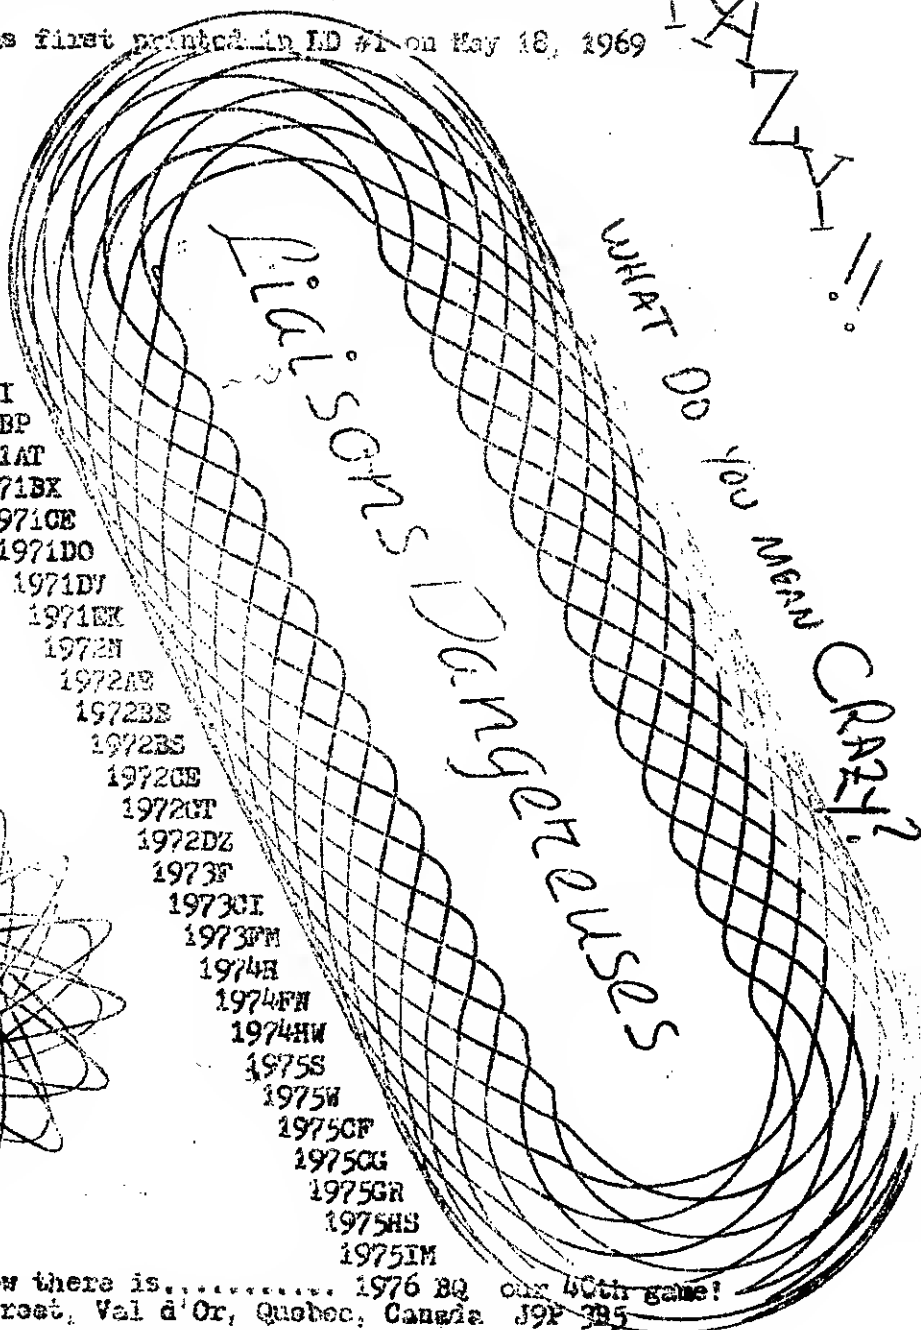 s first printed in LD #1 on May 18, 1969
!!
Liaisons Dangereuses
WHAT DO YOU MEAN CRAZY?
I
BP
1AT
71BX
971CE
1971DO
1971DV
1971EK
1972N
1972BB
1972BS
1972CE
1972CT
1972DZ
1973F
1973CI
1973FM
1974H
1974FN
1974HW
1975S
1975W
1975CF
1975CG
1975GR
1975HS
1975IM
w there is............ 1976 BQ our 40th game!
reet, Val d'Or, Quebec, Canada J9P 3B5